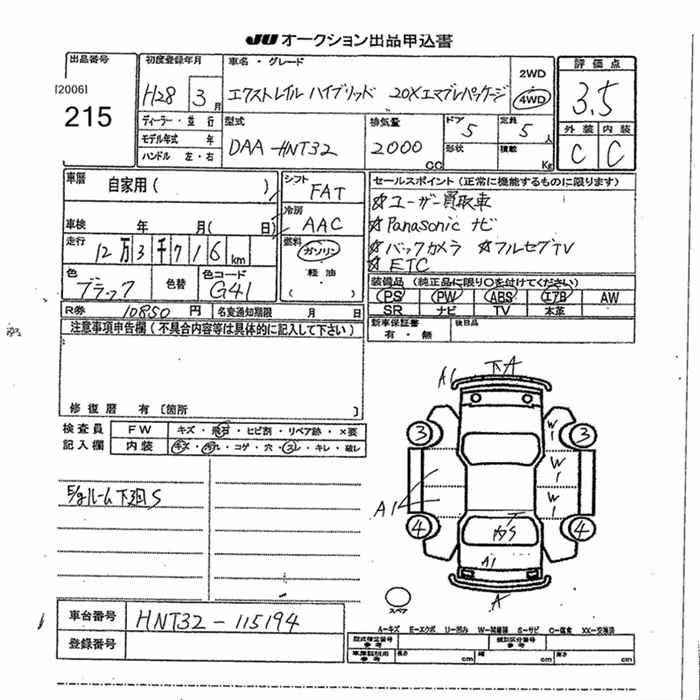 JU オークション出品申込書
出品番号
[2006]
215
初度登録年月
H28 3月
車名・グレード
エクストレイル ハイブリッド 20Xエマブレパッケージ
2WD
4WD
評価点
3.5
外装 内装
C C
ディーラー・並行
モデル年式 年
ハンドル 左・右
型式
DAA-HNT32
排気量
2000 cc
ドア 5
形状
定員 5人
積載 Kg
車歴
自家用( )
シフト
FAT
冷房
AAC
車検 年 月(日)
走行
12万3千716km
燃料
ガソリン
軽油
( )
色
ブラック
色替
色コード
G41
セールスポイント(正常に機能するものに限ります)
☆ユーザー買取車
☆Panasonic ナビ
☆バックカメラ ☆フルセグTV
☆ETC
装備品(純正品に限り○を付けてください)
PS PW ABS エアB AW
SR ナビ TV 本革
R券 10850 円 名変通知期限 月 日
新車保証書
有・無
後日品
注意事項申告欄(不具合内容等は具体的に記入して下さい)
修復歴 有〔箇所 〕
検査員
記入欄
FW キズ・飛石・ヒビ割・リペア跡・×要
内装 キズ・汚れ・コゲ・穴・スレ・キレ・破レ
E/gルーム下廻S
A1 下A
3 3
W1
W1
W1
A1
4 4
内S
A1
A
スペア
車台番号 HNT32-115194
登録番号
A-キズ E-エクボ U-凹み W-補修跡 S-サビ C-腐食 XX-交換済
型式指定番号
参考
類別区分番号
参考
車庫証明用
参考
長さ cm 幅 cm 高さ cm